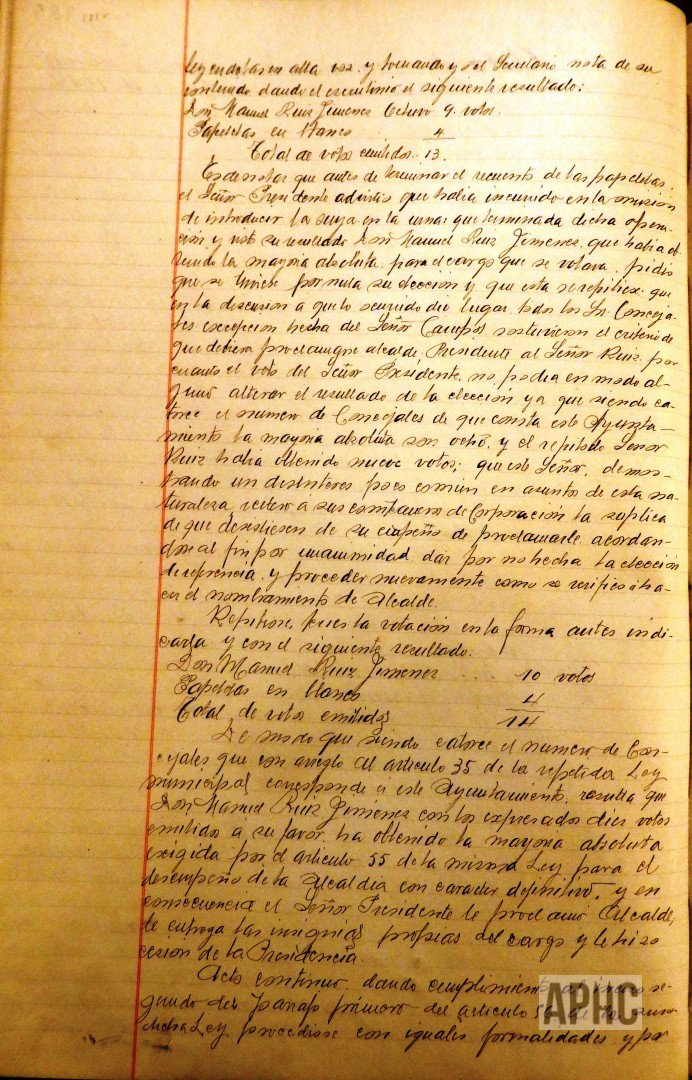 leyendolas en alta voz. y tomando yo el Secretario nota de su
contenido dando el escrutinio el siguiente resultado:
Don Manuel Ruiz Jimenez Obtuvo 9. votos.
Papeletas en blanco . 4
Total de votos emitidos. 13.
Es de notar que antes de terminar el recuento de las papeletas.
el Señor Presidente advirtio que habia incurrido en la omision
de introducir la suya en la urna: que terminada dicha opera-
cion, y visto su resultado Don Manuel Ruiz Jimenez, que habia ob-
tenido la mayoria absoluta. para el cargo que se votava. pidio
que se tuviese por nula su eleccion y que esta se repitiese: que
en la discusion a que lo ocurrido dio lugar todos los Sr. Conceja-
les excepcion hecha del Señor Campos sostuvieron el criterio de
que debiera proclamarse alcalde Presidente al Señor Ruiz. por
cuanto el voto del Señor Presidente, no, podia en modo al-
guno alterar el resultado de la eleccion ya que siendo ca-
torce el numero de Concejales de que consta este Ayunta-
miento la mayoria absoluta son ocho. y el repitido Señor
Ruiz habia obtenido nueve votos; que este Señor. demos-
trando un desinteres poco comun en asunto de esta na-
turaleza, reitero a sus compañeros de Corporación la suplica
de que desistiesen de su empeño de proclamarle. acordan-
dose al fin por unanimidad. dar por no hecha la elección
de referencia. y proceder nuevamente como se verifico a ha-
cer el nombramiento de Alcalde.
Repitiose, pues la votación en la forma antes indi-
cada y con el siguiente resultado.
Don Manuel Ruiz Jimenez .... 10 votos
Papeletas en blanco 4
Total de votos emitidos 14
De modo que siendo catorce el numero de Con-
cejales que con arreglo al articulo 35 de la repetida Ley
municipal corresponde a este Ayuntamiento. resulta que
Don Manuel Ruiz Jimenez con los expresados diez votos
emitidos a su favor, ha obtenido la mayoria absoluta
exigida por el articulo 55 de la misma Ley para el
desempeño de la Alcaldia con caracter definitivo, y en
consecuencia el Señor Presidente le proclamó Alcalde,
le entrega las insignias propias del cargo y le hizo
cesion de la Presidencia.
Acto continuo. dando cumplimiento al inciso se-
gundo del parrafo primero del articulo 5 de la
dicha Ley. procediose con iguales formalidades y por
APHC